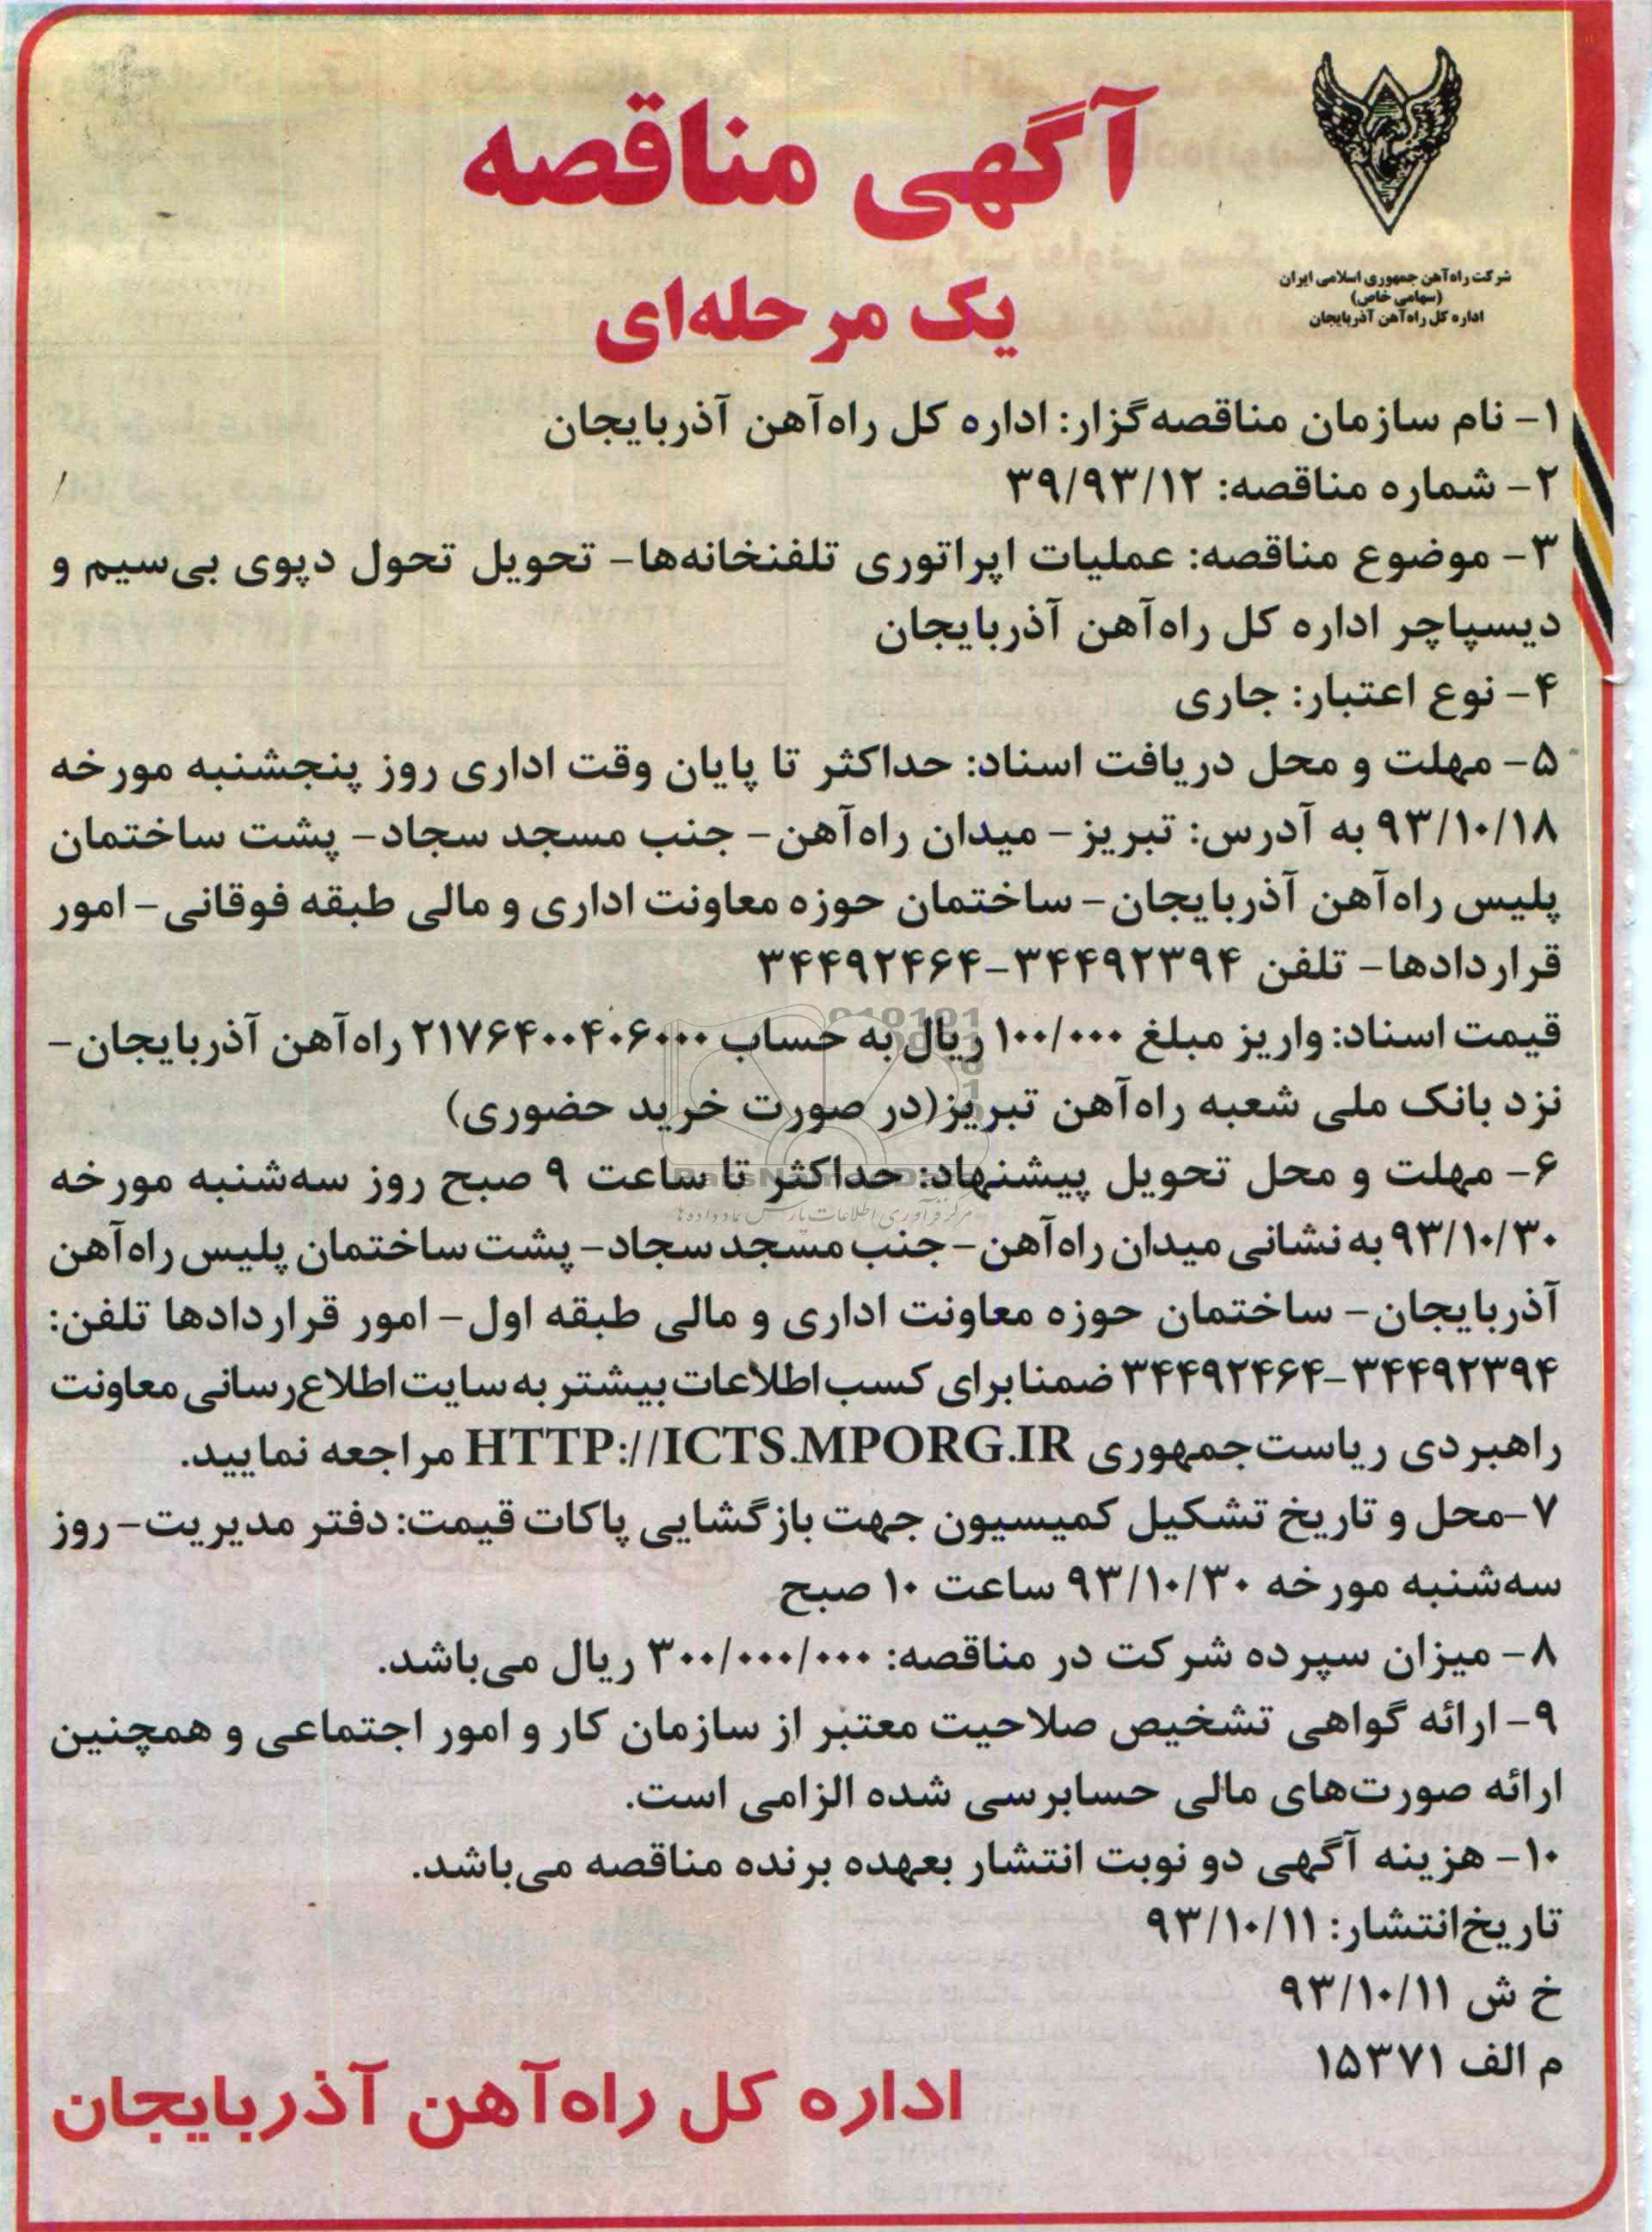 شرکت راه‌آهن جمهوری اسلامی ایران
(سهامی خاص)
اداره کل راه‌آهن آذربایجان
آگهی مناقصه
یک مرحله‌ای
۱- نام سازمان مناقصه‌گزار: اداره کل راه‌آهن آذربایجان
۲- شماره مناقصه: ۳۹/۹۳/۱۲
۳- موضوع مناقصه: عملیات اپراتوری تلفنخانه‌ها- تحویل تحول دپوی بی‌سیم و
دیسپاچر اداره کل راه‌آهن آذربایجان
۴- نوع اعتبار: جاری
۵- مهلت و محل دریافت اسناد: حداکثر تا پایان وقت اداری روز پنجشنبه مورخه
۹۳/۱۰/۱۸ به آدرس: تبریز- میدان راه‌آهن- جنب مسجد سجاد- پشت ساختمان
پلیس راه‌آهن آذربایجان- ساختمان حوزه معاونت اداری و مالی طبقه فوقانی- امور
قراردادها- تلفن ۳۴۴۹۲۳۹۴-۳۴۴۹۲۴۶۴
قیمت اسناد: واریز مبلغ ۱۰۰/۰۰۰ ریال به حساب ۲۱۷۶۴۰۰۴۰۶۰۰۰ راه‌آهن آذربایجان-
نزد بانک ملی شعبه راه‌آهن تبریز(در صورت خرید حضوری)
۶- مهلت و محل تحویل پیشنهاد: حداکثر تا ساعت ۹ صبح روز سه‌شنبه مورخه
۹۳/۱۰/۳۰ به نشانی میدان راه‌آهن- جنب مسجد سجاد- پشت ساختمان پلیس راه‌آهن
آذربایجان- ساختمان حوزه معاونت اداری و مالی طبقه اول- امور قراردادها تلفن:
۳۴۴۹۲۳۹۴-۳۴۴۹۲۴۶۴ ضمنا برای کسب اطلاعات بیشتر به سایت اطلاع‌رسانی معاونت
راهبردی ریاست‌جمهوری HTTP://ICTS.MPORG.IR مراجعه نمایید.
۷-محل و تاریخ تشکیل کمیسیون جهت بازگشایی پاکات قیمت: دفتر مدیریت- روز
سه‌شنبه مورخه ۹۳/۱۰/۳۰ ساعت ۱۰ صبح
۸- میزان سپرده شرکت در مناقصه: ۳۰۰/۰۰۰/۰۰۰ ریال می‌باشد.
۹- ارائه گواهی تشخیص صلاحیت معتبر از سازمان کار و امور اجتماعی و همچنین
ارائه صورت‌های مالی حسابرسی شده الزامی است.
۱۰- هزینه آگهی دو نوبت انتشار بعهده برنده مناقصه می‌باشد.
تاریخ‌انتشار: ۹۳/۱۰/۱۱
خ ش ۹۳/۱۰/۱۱
م الف ۱۵۳۷۱
اداره کل راه‌آهن آذربایجان